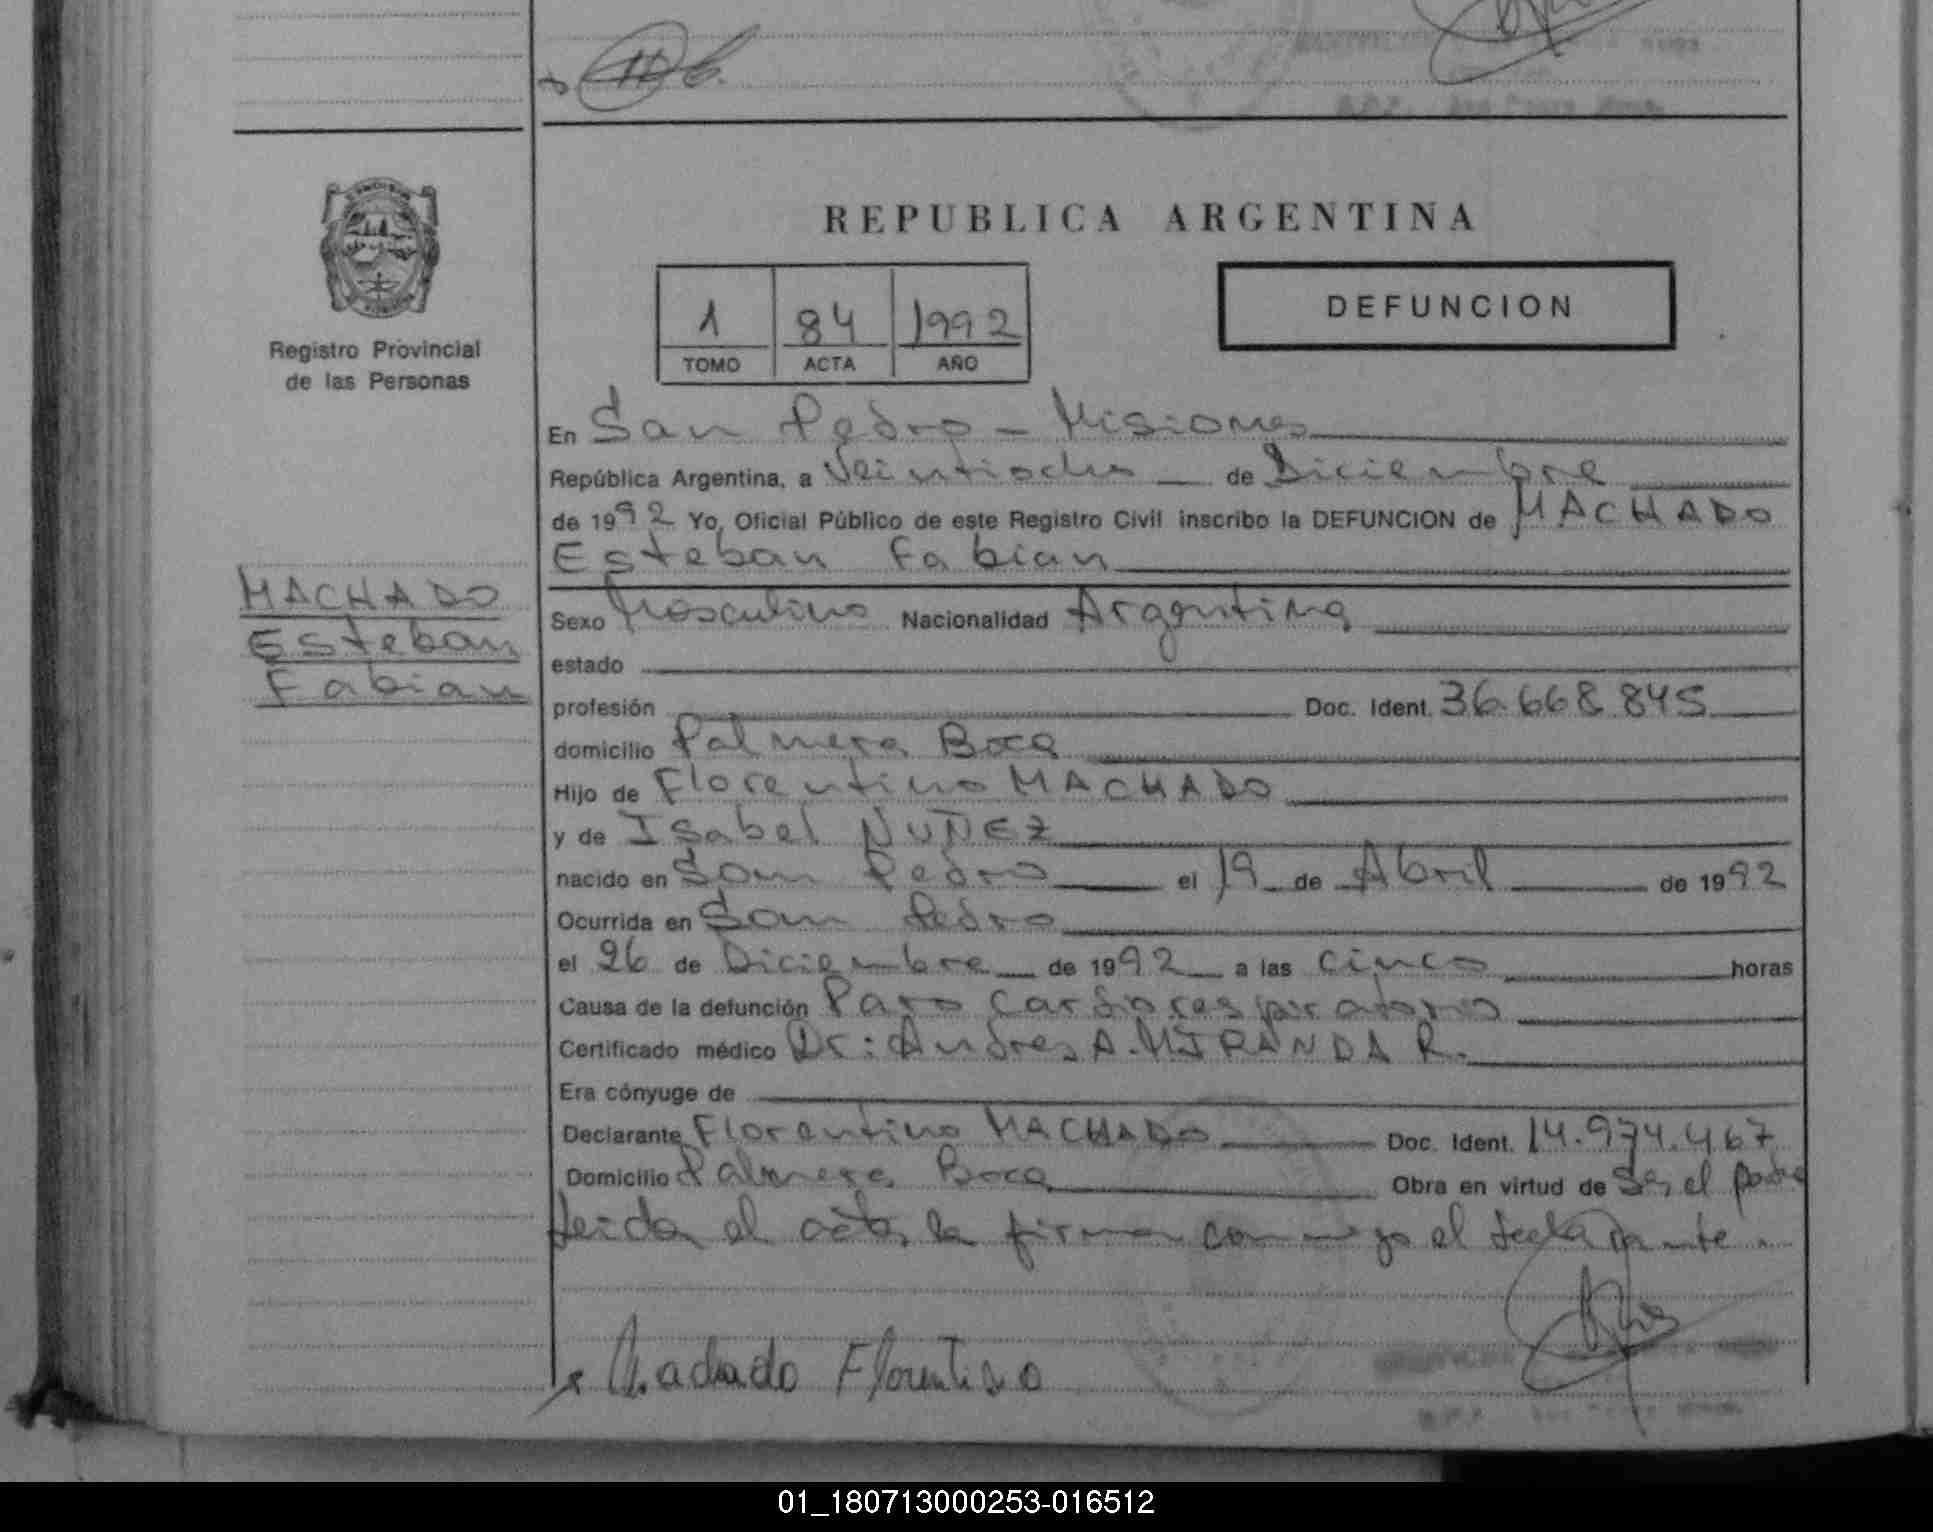 REPUBLICA ARGENTINA
Registro Provincial
de las Personas
1 84 1992
TOMO ACTA AÑO
DEFUNCION
En San Pedro - Misiones
República Argentina, a Veintiocho de Diciembre
de 1992 Yo, Oficial Público de este Registro Civil inscribo la DEFUNCION de MACHADO
Esteban Fabian
MACHADO
Esteban
Fabian
Sexo Masculino Nacionalidad Argentina
estado
profesión Doc. Ident. 36.668.845
domicilio Palmera Boca
Hijo de Florentino MACHADO
y de Isabel NUÑEZ
nacido en San Pedro el 19 de Abril de 1992
Ocurrida en San Pedro
el 26 de Diciembre de 1992 a las cinco horas
Causa de la defunción Paro Cardiorespiratorio
Certificado médico Dr: Andres A. MIRANDA R.
Era cónyuge de
Declarante Florentino MACHADO Doc. Ident. 14.974.467
Domicilio Palmera Boca Obra en virtud de Ser el padre
Leida el acta la firma con migo el declarante.
Machado Florentino
01_180713000253-016512